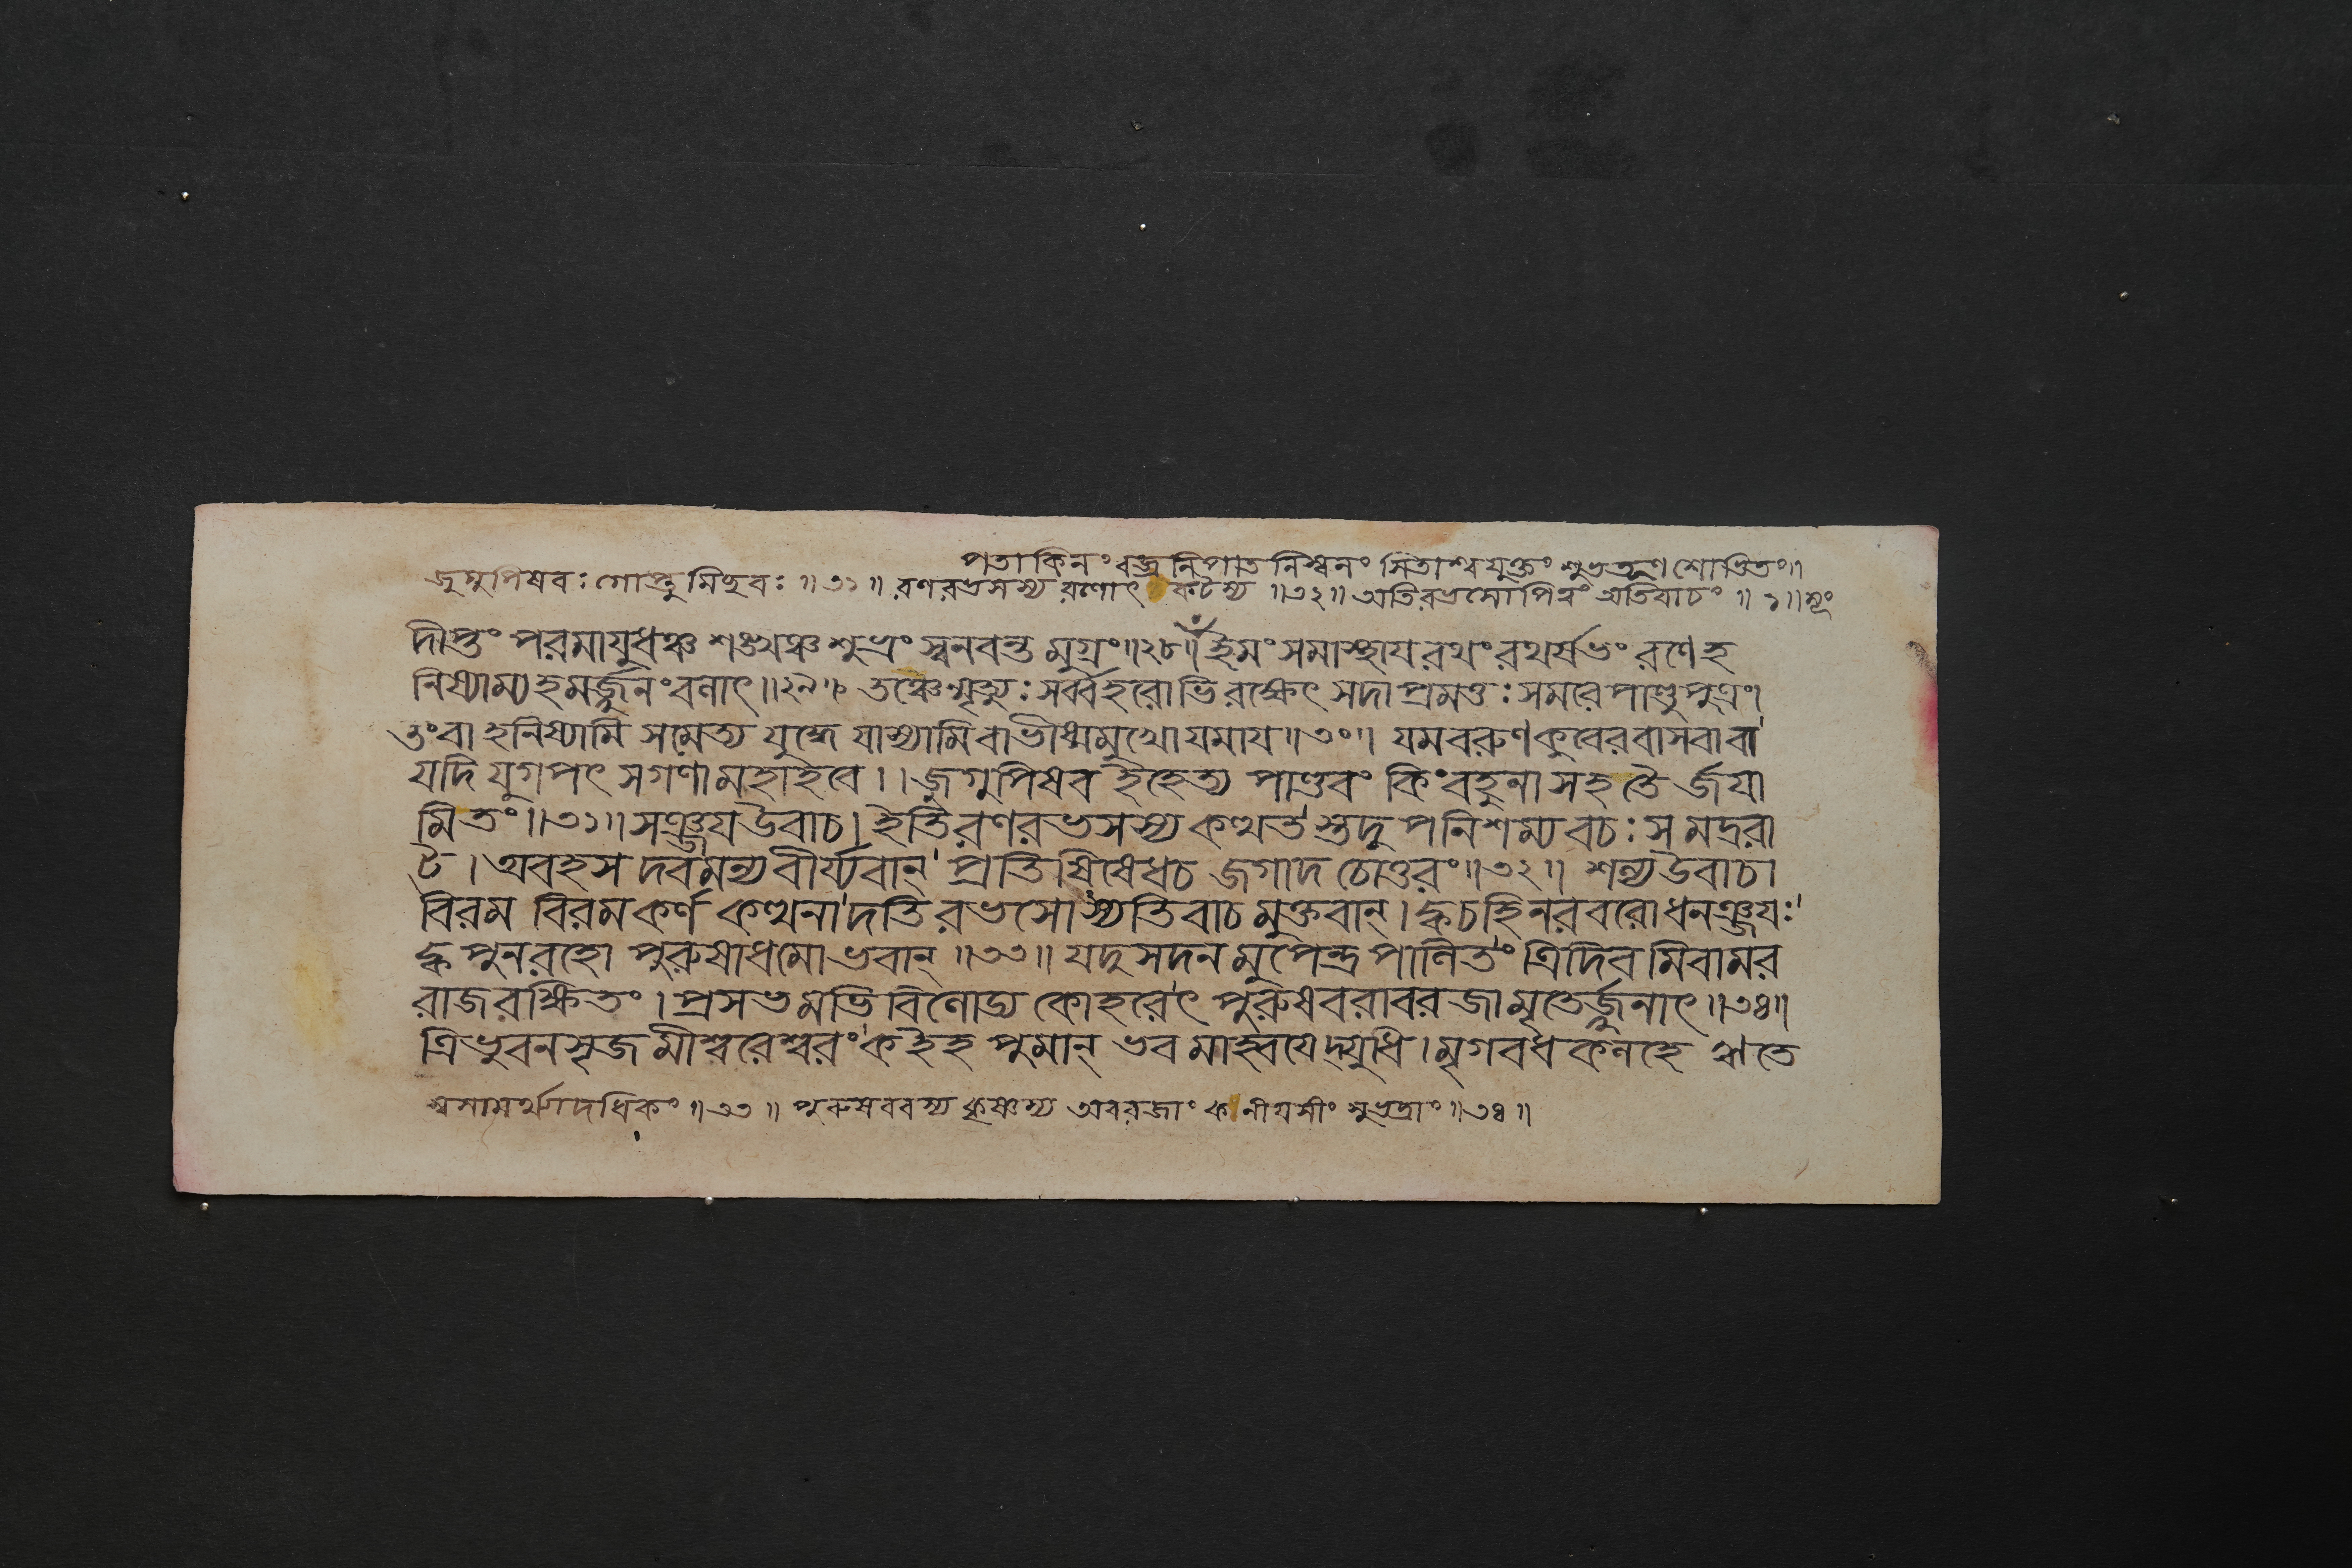 পতাকিনং বজ্রনিপাতনিস্বনং সিতাশ্বযুক্তং শুভতূণশোভিতং॥
জুগুপিষবঃ গোপ্তুমিছবঃ ॥৩১॥ রণরভসস্য রণোৎকটস্য ॥৩২॥ অতিরভসোপিত্বং অতিবাচং ॥১॥
দীপ্তং পরমাযুধঞ্চ শঙ্খঞ্চ শুভ্রং স্বনবন্ত মুগ্রং॥২৮॥ ইমং সমাস্থায রথং রথর্ষভং রণেহ
নিষ্যাম্যহমর্জ্জুনং বলাৎ॥২৯॥ তঞ্চেন্মৃত্যুঃ সর্ব্বহরোভিরক্ষেৎ সদাপ্রমত্তঃ সমরেপাণ্ডুপুত্রং।
তংবা হনিষ্যামি সমেত্য যুদ্ধে যাস্যামিবাভীষ্মমুখোযমায॥৩০॥ যমবরুণকুবেরবাসবাবা
যদি যুগপৎ সগণামহাহবে।। জুগুপিষব ইহেত্য পাণ্ডবং কিংবহুনা সহতৈর্জযা
মিতং॥৩১॥ সঞ্জযউবাচ। ইতিরণরভসস্য কত্থতস্তদুপনিশম্য বচঃ সমদ্ররা
ট। অবহসদবমন্য বীর্য্যবান্ প্রতিষিষেধচ জগাদ চোত্তরং॥৩২॥ শল্যউবাচ।
বিরম বিরমকর্ণ কত্থনাদতিরভসোস্যতিবাচ মুক্তবান্। ক্বচহিনরবরোধনঞ্জযঃ
ক্ব পুনরহো পুরুষাধমোভবান্ ॥৩৩॥ যদুসদনমুপেন্দ্রপালিতং ত্রিদিবমিবামর
রাজরক্ষিতং। প্রসভমভিবিলোড্য কোহরেৎ পুরুষবরাবরজামৃতের্জ্জুনাৎ॥৩৪॥
ত্রিভুবনসৃজমীশ্বরেশ্বরং কইহ পুমান্ ভবমাহ্বযেদ্যুধি। মৃগবধকলহে ঋতে
স্বসামর্থ্যাদধিকং ॥৩৩॥ পুরুষবরস্য কৃষ্ণস্য অবরজাং কনীযসীং সুভদ্রাং॥৩৪॥